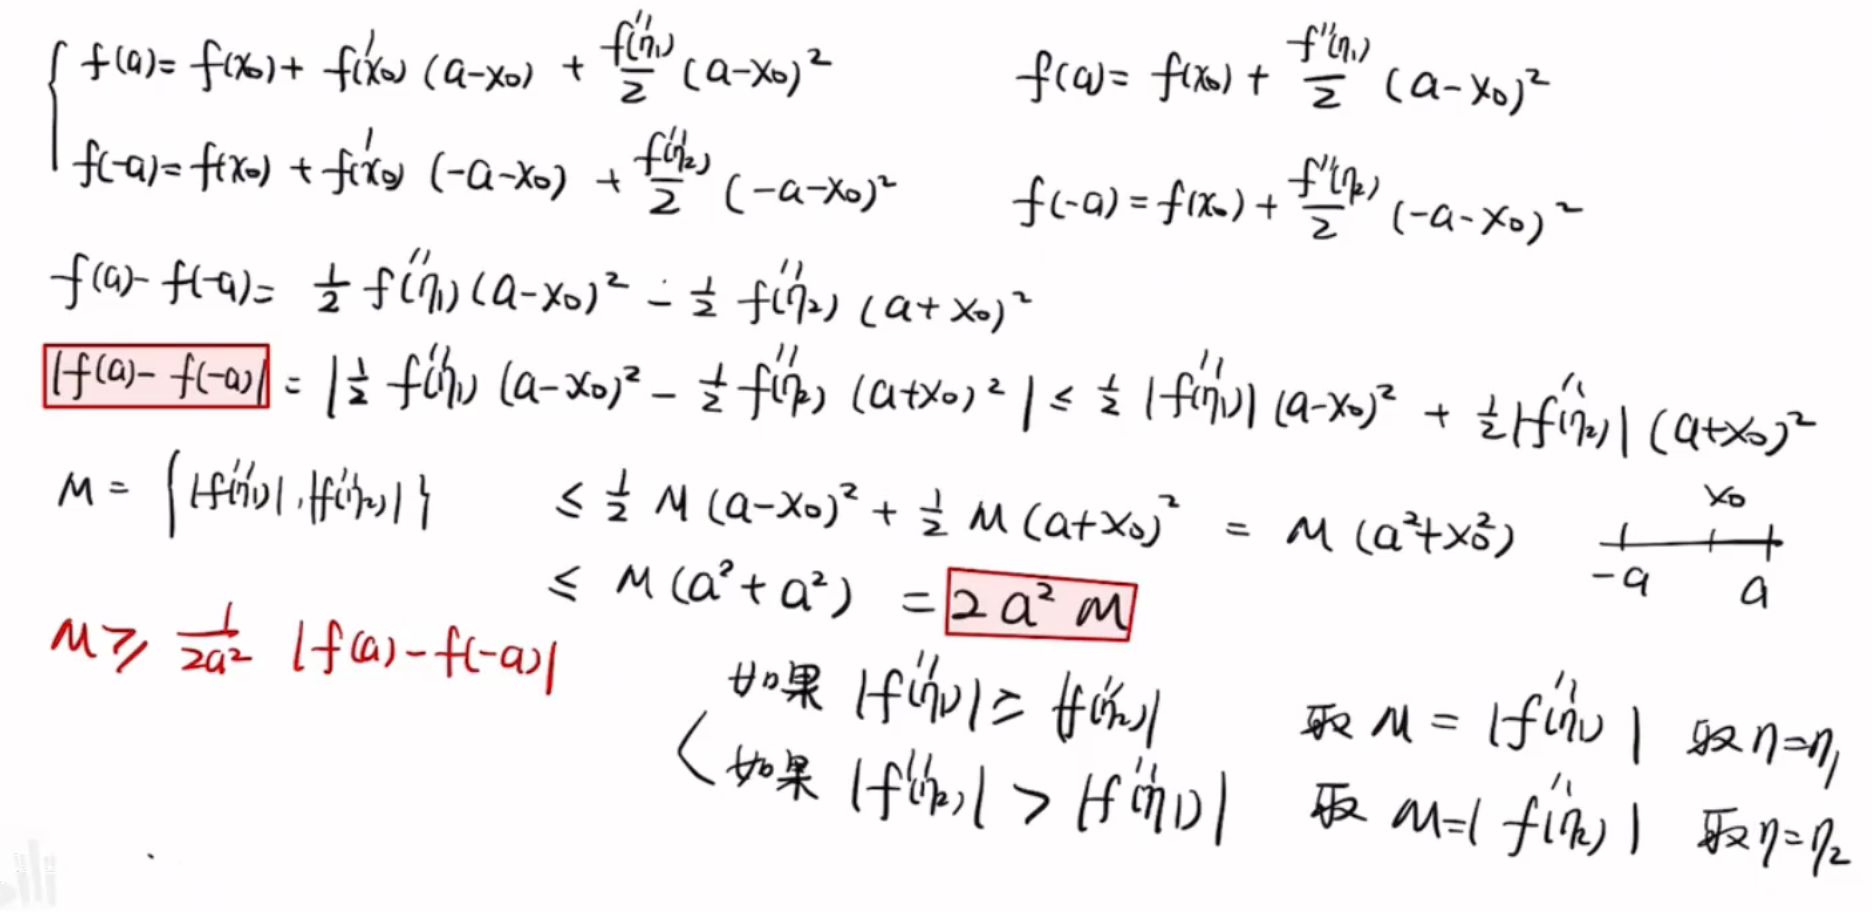 f(a)= f(x₀)+ f'(x₀) (a-x₀) + f''(η₁)/2 (a-x₀)²
f(a)= f(x₀) + f''(η₁)/2 (a-x₀)²
f(-a)= f(x₀) + f'(x₀) (-a-x₀) + f''(η₂)/2 (-a-x₀)²
f(-a) = f(x₀) + f''(η₂)/2 (-a-x₀)²
f(a)- f(-a)= 1/2 f''(η₁)(a-x₀)² - 1/2 f''(η₂) (a+x₀)²
|f(a)- f(-a)| = |1/2 f''(η₁) (a-x₀)² - 1/2 f''(η₂) (a+x₀)²| ≤ 1/2 |f''(η₁)| (a-x₀)² + 1/2 |f''(η₂)| (a+x₀)²
M = {|f''(η₁)|, |f''(η₂)|} ≤ 1/2 M (a-x₀)² + 1/2 M (a+x₀)² = M (a²+x₀²)
x₀
-a a
≤ M (a²+a²) = 2a² M
M ≥ 1/2a² |f(a)-f(-a)|
如果 |f''(η₁)| ≥ |f''(η₂)| 取 M = |f''(η₁)| 取 η=η₁
如果 |f''(η₂)| > |f''(η₁)| 取 M=|f''(η₂)| 取 η=η₂